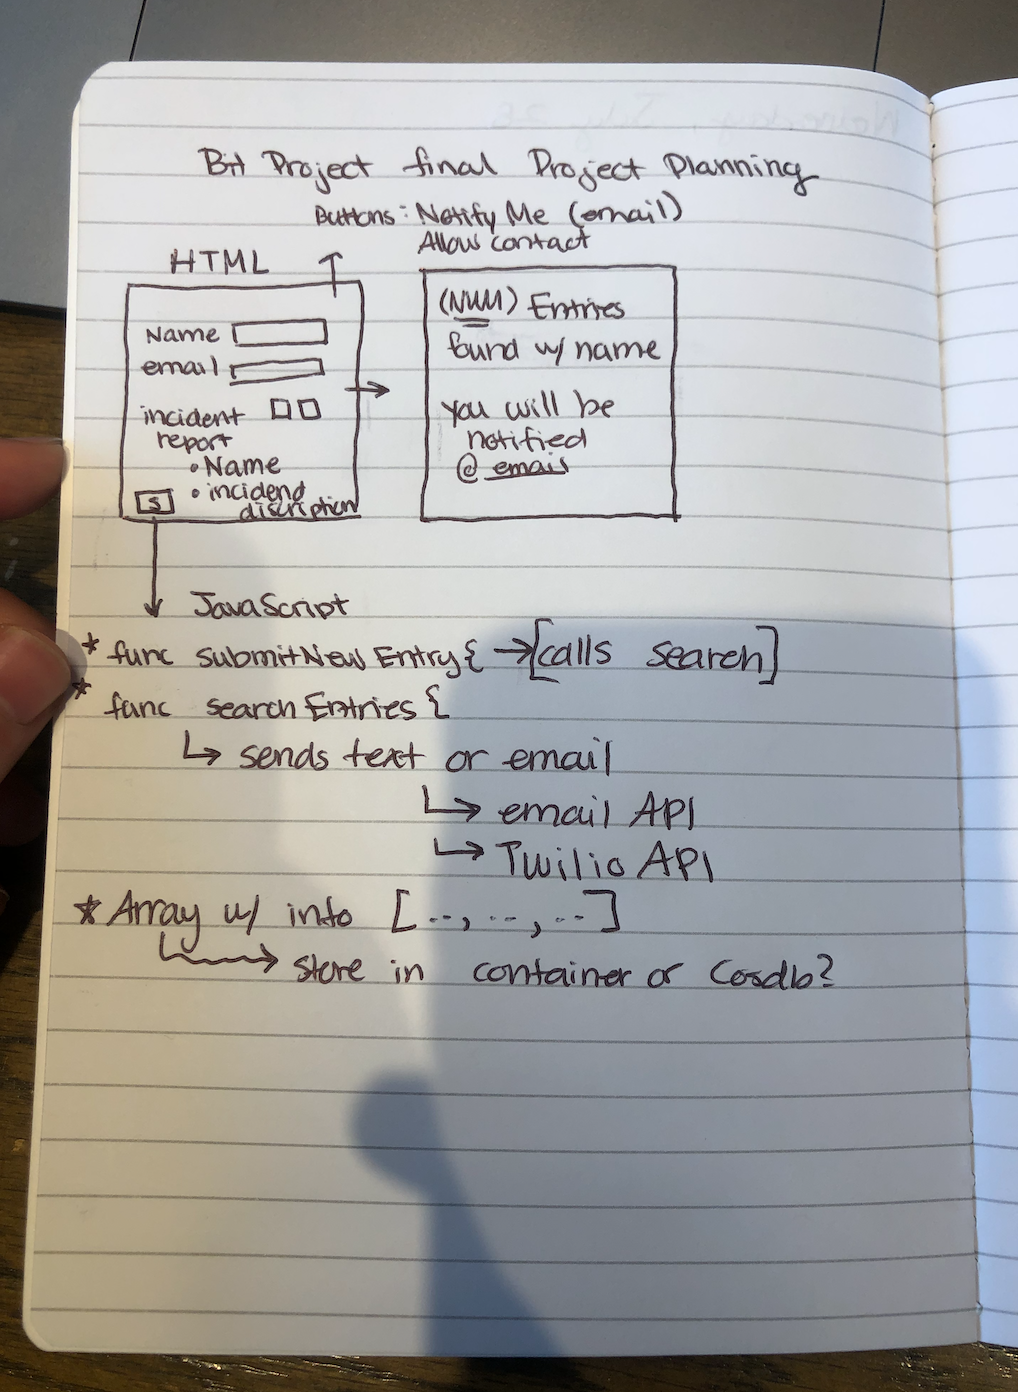 Bit Project final Project Planning
Buttons: Notify Me (email)
Allow contact
HTML
Name
email
incident
report
• Name
• incidend
discription
S
(NUM) Entries
found w/ name
you will be
notified
@ email
JavaScript
* func submitNewEntry{ → [calls search]
* func searchEntries{
↳ sends text or email
↳ email API
↳ Twilio API
* Array w/ info [--, --, --]
↳ store in container or Cosdb?